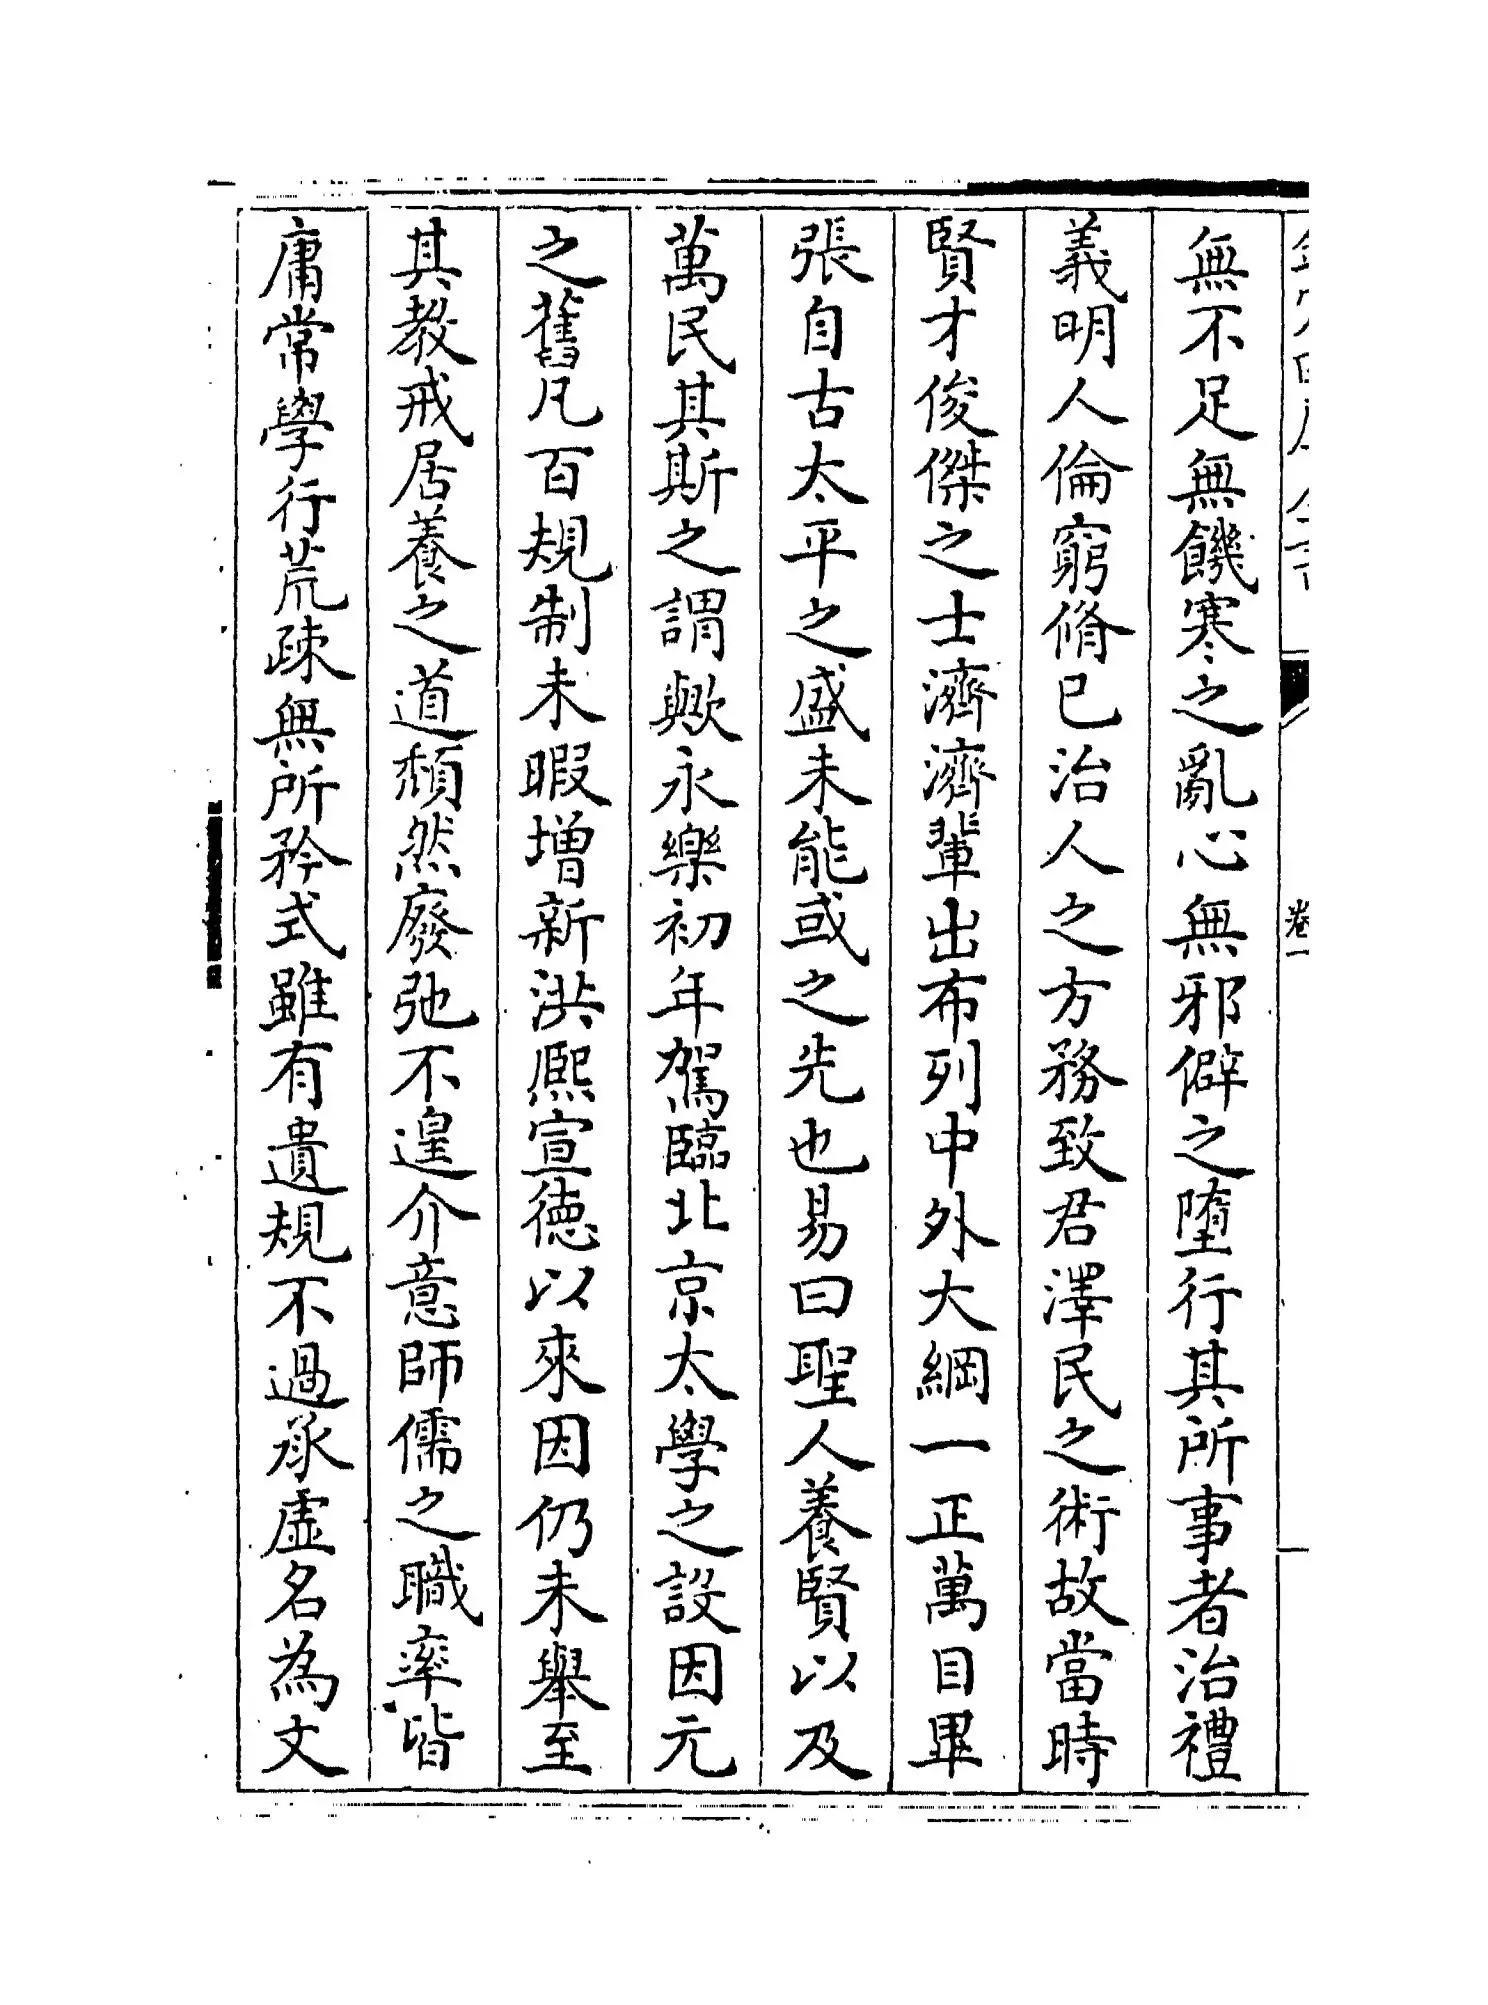 無不足無饑寒之亂心無邪僻之墮行其所事者治禮
義明人倫窮脩已治人之方務致君澤民之術故當時
賢才俊傑之士濟濟輩出布列中外大綱一正萬目畢
張自古太平之盛未能或之先也易曰聖人養賢以及
萬民其斯之謂歟永樂初年駕臨北京太學之設因元
之舊凡百規制未暇增新洪熈宣德以來因仍未舉至
其教戒居養之道頽然廢弛不遑介意師儒之職率皆
庸常學行荒疎無所矜式雖有遺規不過承虛名為文
卷一